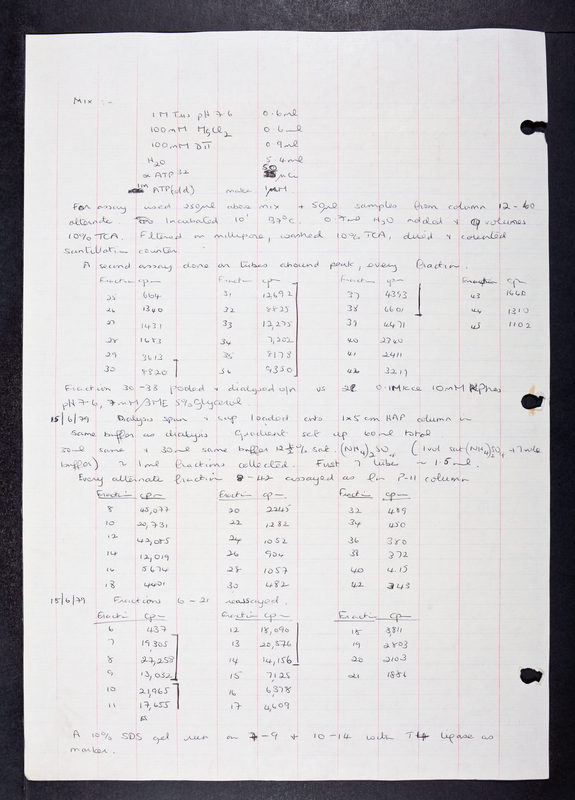 Mix :-
1M Tris pH 7·6 0·6ml
100mM MgCl2 0·6ml
100mM DTT 0·9ml
H2O 5·4ml
α ATP 32 50 μCi
1m ATP (old) make 1μM.
For assay used 250μl above mix + 50μl samples from column 12-60
alternate Incubated 10' 37°C. 0·7ml H2O added & volumes
10% TCA. Filtered on millipore, washed 10% TCA, dried & counted
scintillation counter.
A second assay done on tubes around peak, every fraction.
Fraction cpm Fraction cpm Fraction cpm Fraction cpm
25 664 31 12,692 37 4353 43 1660
26 1340 32 8825 38 6601 44 1310
27 1431 33 12,275 39 4471 45 1102
28 1683 34 7,202 40 2340
29 3613 35 8178 41 2411
30 8820 36 9350 42 3219
Fraction 30-38 pooled & dialysed o/n vs 2l 0·1M KCl 10mM
pH 7·6, 7mM βME 5% glycerol
15/6/79 Dialysis spun & sup loaded onto 1x5cm HAP column in
same buffer as dialysis. Gradient set up 60ml total
30ml same + 30ml same buffer 12½% sat. (NH4)2SO4 (1vol sat (NH4)2SO4 + 7 vols
buffer) ~ 1ml fractions collected. First 7 tubes ~ 1·5ml.
Every alternate fraction 8-42 assayed as for P-11 column
Fraction cpm Fraction cpm Fraction cpm
8 45,077 20 2245 32 489
10 20,731 22 1282 34 450
12 42,085 24 1052 36 380
14 12,019 26 904 38 372
16 5674 28 1057 40 415
18 4401 30 482 42 343
15/6/79 Fractions 6-21 reassayed.
Fraction cpm Fraction cpm Fraction cpm
6 437 12 18,090 18 3,811
7 19,305 13 20,576 19 2803
8 22,258 14 14,156 20 2103
9 13,032 15 7,125 21 1886
10 21,965 16 6,378
11 17,655 17 4,609
A 10% SDS gel run on 7-9 & 10-14 with T4 ligase as
marker.